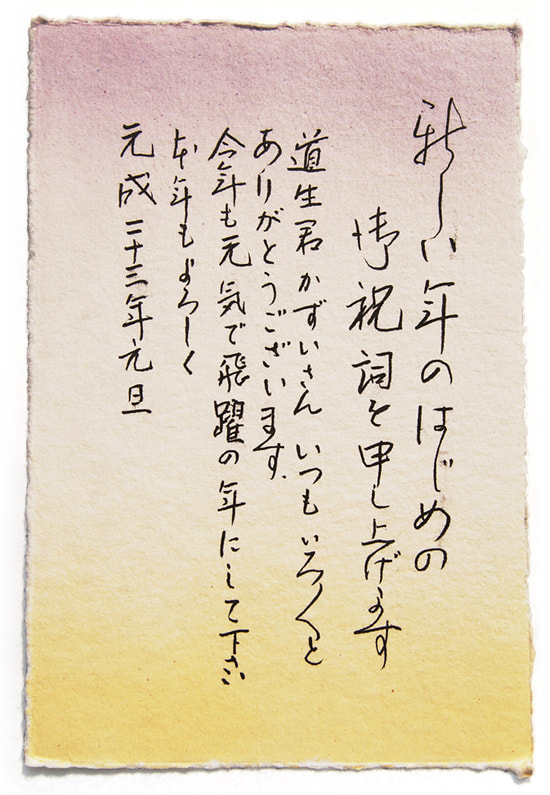 新しい年のはじめの
御祝詞を申し上げます
道生君かずいさんいつもいろ〱と
ありがとうございます。
今年も元気で飛躍の年にして下さい
本年もよろしく
元成二十三年元旦